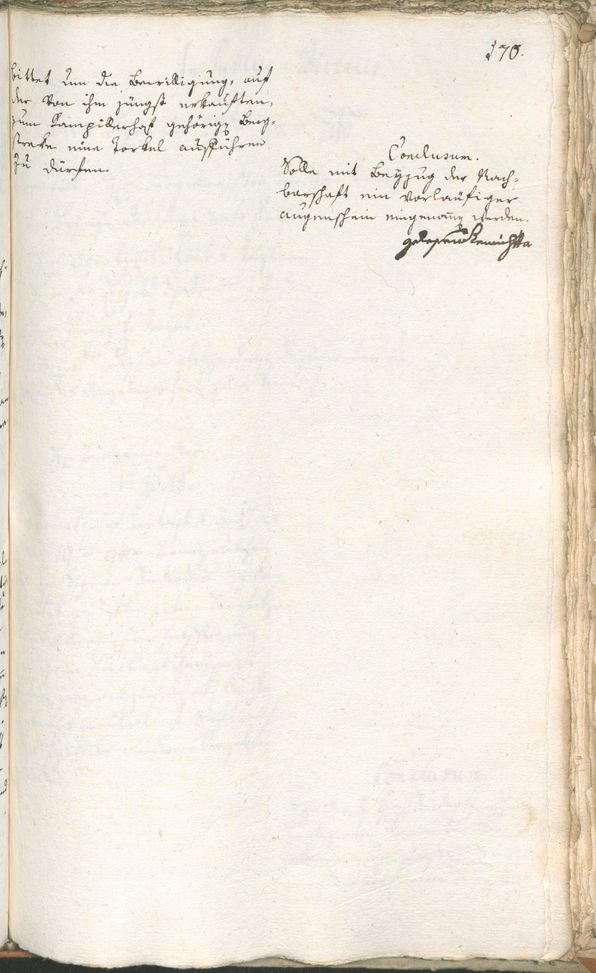 170.
bittet um die Bewilligung, auf
der von ihm jüngst erkauften,
zum Kampillerhof gehörigen Berg-
streke eine Torkel aufführen
zu dürfen.
Conclusum.
Solle mit Beyzug der Nach-
barschaft ein vorläufiger
augenschein eingenommen werden.